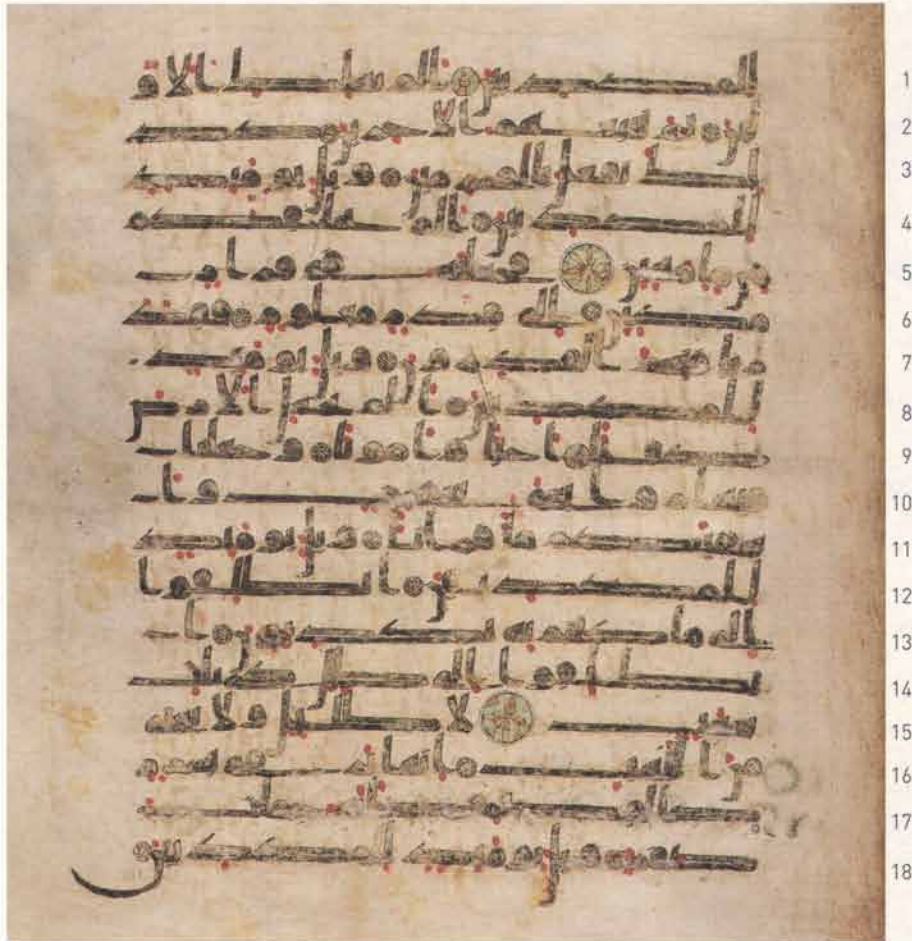 للمكذبين الم نهلك الاو 1
لين ثم نتبعهم الاخرين كذ 2
لك نفعل بالمجرمين ويل يومئذ 3
للمكذبين الم نخلقكم 4
من ما مهين فجعلنه في قرار 5
مكين الى قدر معلوم فقد 6
رنا فنعم القدرون ويل يومئذ 7
للمكذبين الم نجعل الارض 8
كفاتا احيا وامواتا وجعلنا 9
فيها روسي شمخت واس 10
قينكم ما فراتا ويل يومئذ 11
للمكذبين انطلقوا 12
الى ما كنتم به تكذبون ا 13
نطلقوا الى ظل ذي ثلث 14
شعب لا ظليل ولا يغني 15
من اللهب انها ترمي بشر 16
ر كالقصر كانه جملت 17
صفر ويل يومئذ للمكذبين 18